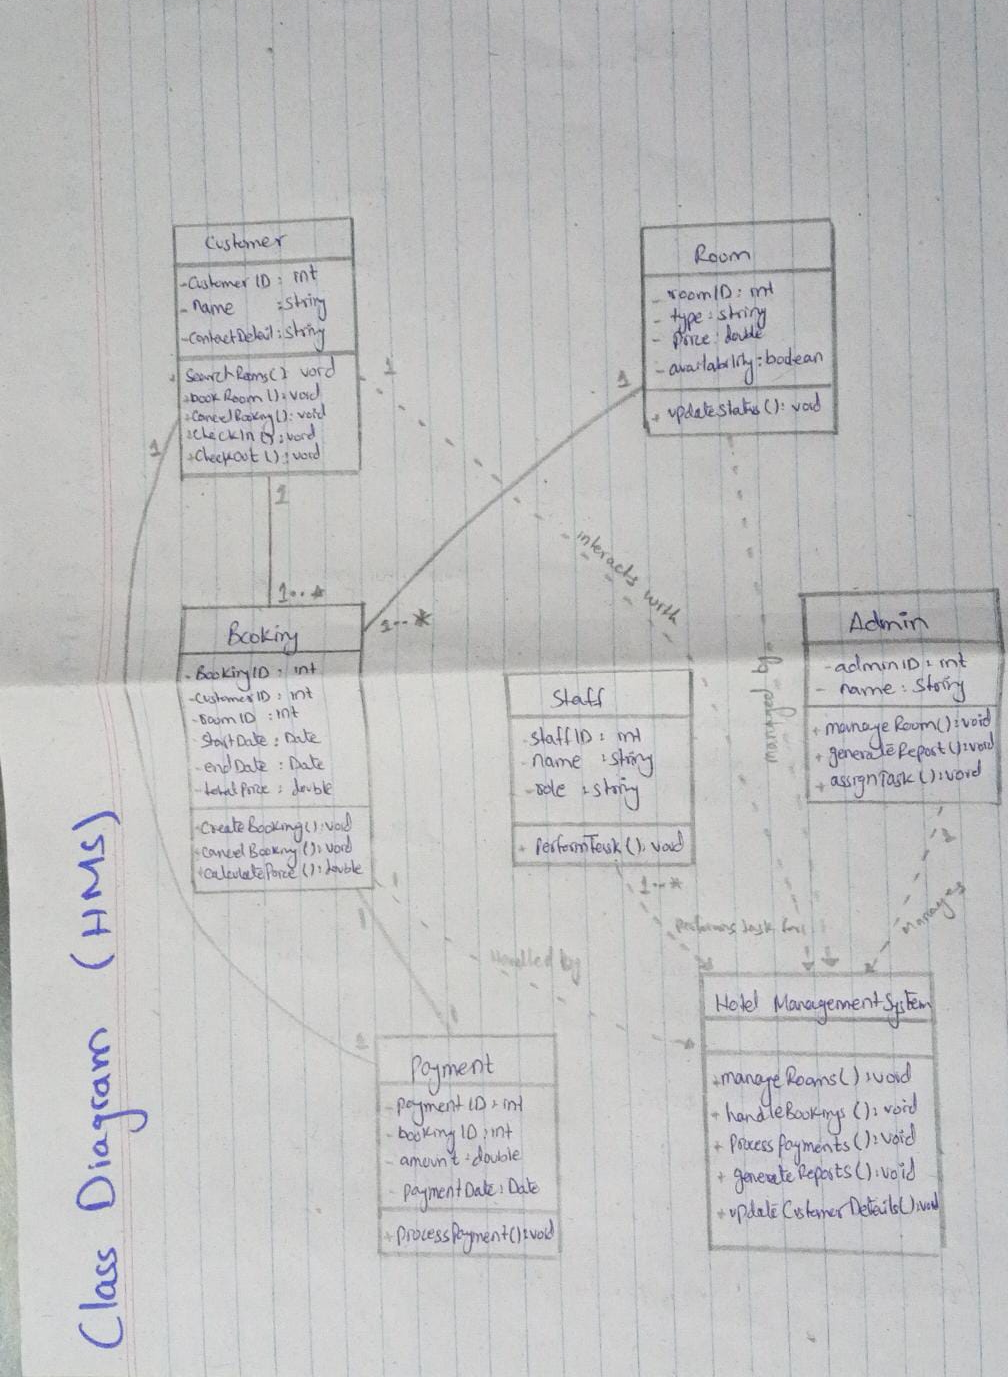 Class Diagram (HMS)
Customer
-Customer ID : int
- Name : String
-ContactDetail : String
+ SearchRooms() void
+bookRoom() : void
+CancelBooking() : void
+CheckIn () : void
+Checkout () : void
Room
- roomID : int
- type : string
- Price : double
- availability : boolean
+ updateStatus () : void
1
1
1
1
1
1..*
1..*
interacts with
managed by
Booking
-BookingID : int
-CustomerID : int
-roomID : int
StartDate : Date
-endDate : Date
-totalPrice : double
+CreateBooking() : void
+cancelBooking () : void
+CalculatePrice () : double
Staff
-staffID : int
-name : string
-role : string
+ PerformTask () : void
Admin
-adminID : int
- name : String
+ manageRoom() : void
+ generateReport () : void
+ assignTask () : void
1
1
1..*
1
Performs task for
manages
Handled by
1
1
Payment
- payment ID : int
- booking ID : int
- amount : double
- paymentDate : Date
+ ProcessPayment() : void
Hotel ManagementSystem
+manageRooms() : void
+ handleBookings () : void
+ ProcessPayments () : void
+ generateReports() : void
+ updateCustomerDetails() : void